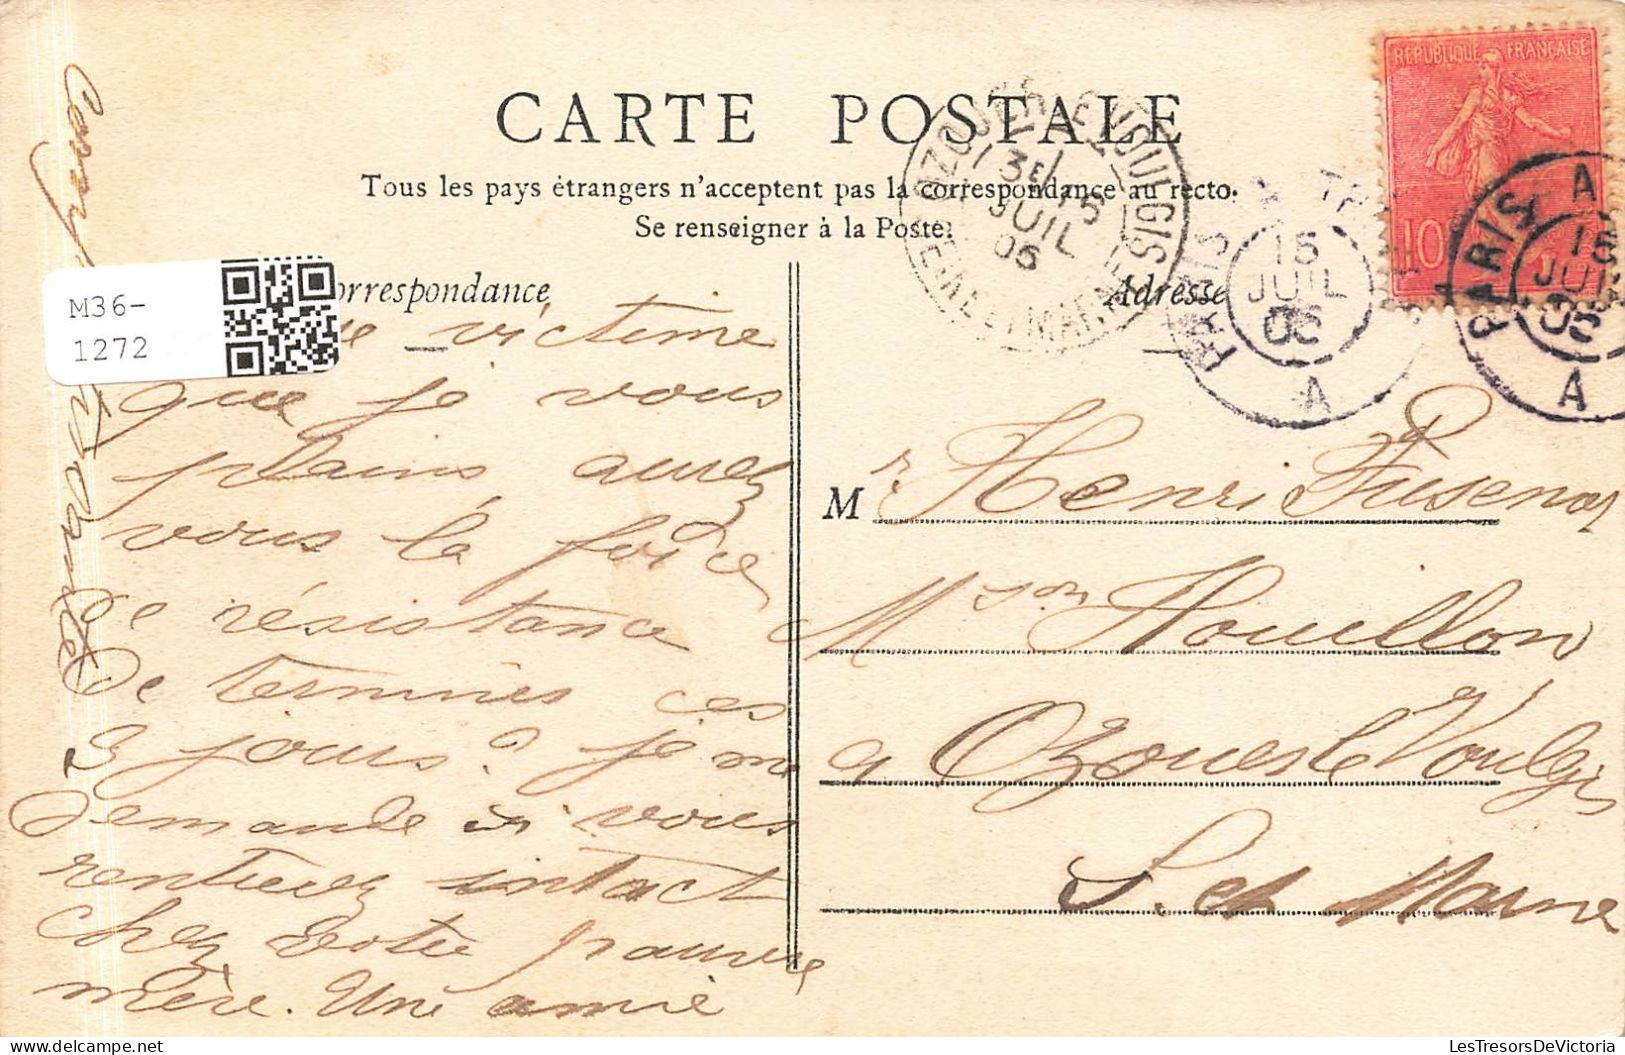 CARTE POSTALE
Tous les pays étrangers n'acceptent pas la correspondance au recto.
Se renseigner à la Poste.
orrespondance
Adresse
REPUBLIQUE FRANÇAISE
10
OZOUER LE VOULGIS
SEINE ET MARNE
3E
15
JUIL
06
PARIS
15
JUIL
06
A
PARIS
A
15
JUIL
A
M36-
1272
victime
que je vous
plains aurez
vous la force
de résistance
De terminés ces
3 jours? je me
demande si vous
rentrerez intact
chez votre pauvre
mère. Une amie
Mr Henri Fusenot
Mson Houillon
à Ozouer le Voulgis
S. et Marne
LesTresorsDeVictoria